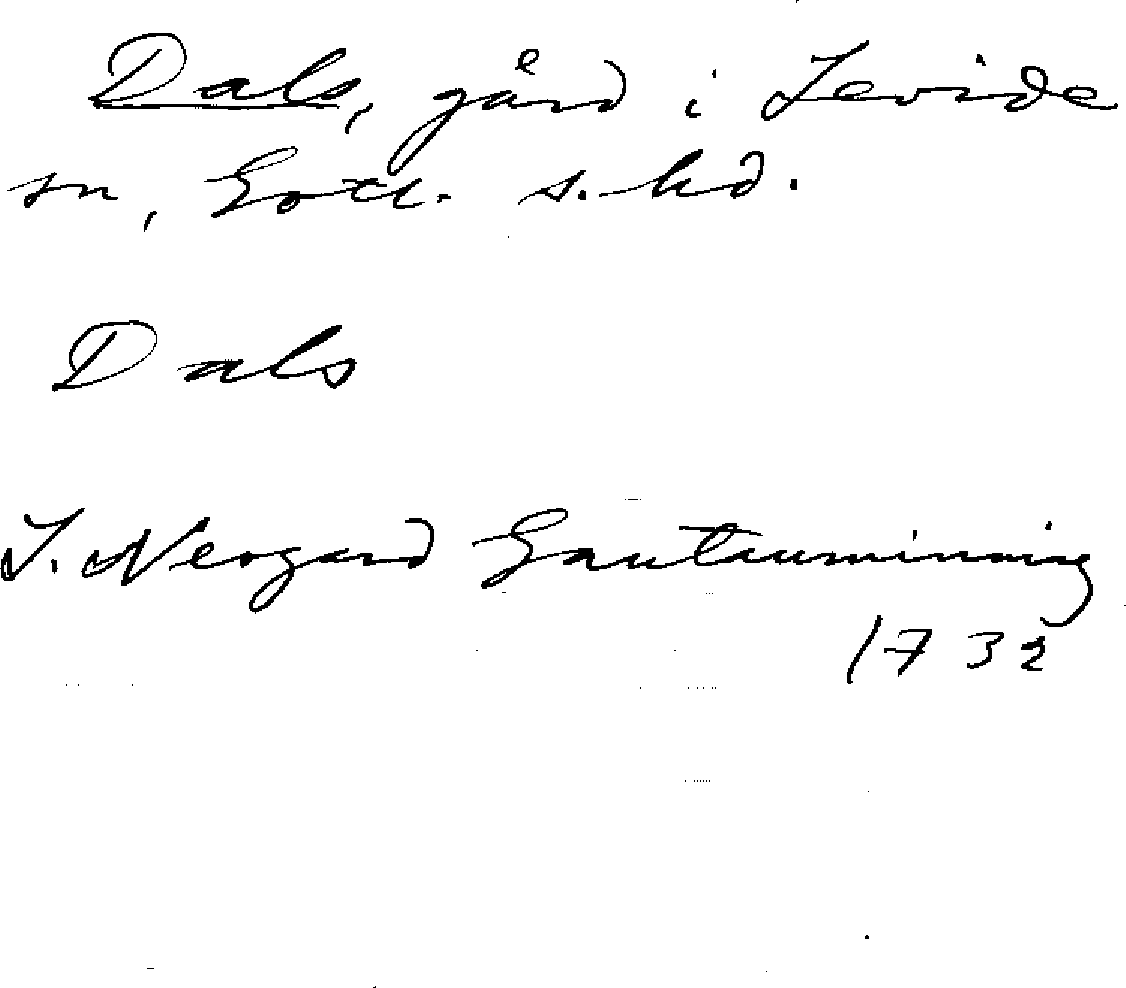 Dals, gård i Levide
sn, Gotl. s. hd.
Dals
J. Neogard Gautauminning
1732